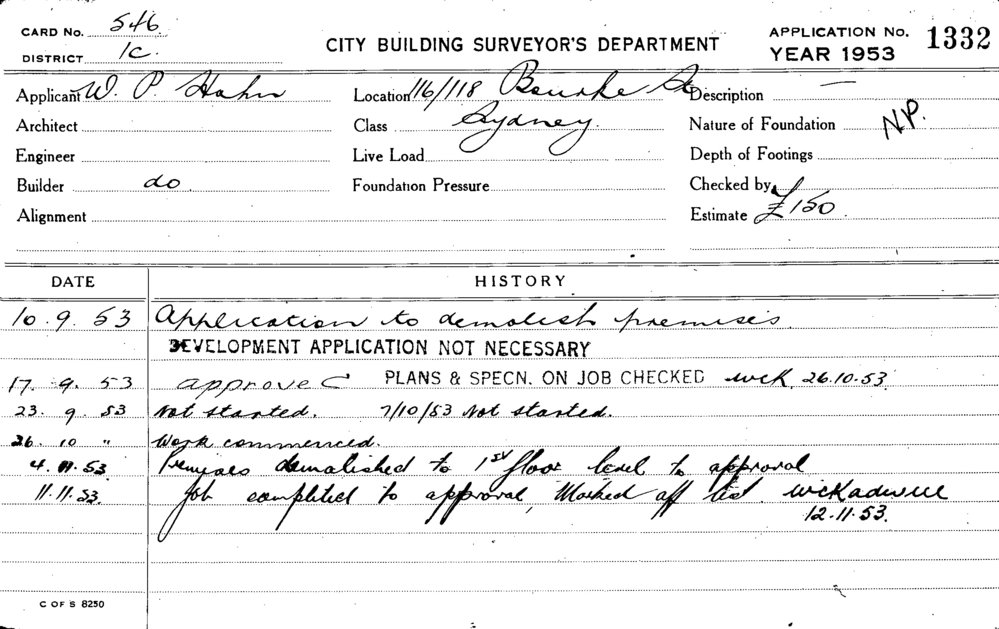 CARD No. 546
DISTRICT 1C.
CITY BUILDING SURVEYOR'S DEPARTMENT
APPLICATION No. 1332
YEAR 1953
Applicant W. P. Hahn
Location 116/118 Bourke St
Description —
Architect
Class Sydney.
Nature of Foundation N.P.
Engineer
Live Load
Depth of Footings
Builder do
Foundation Pressure
Checked by
Alignment
Estimate £150
DATE HISTORY
10.9.53 Application to demolish premises
DEVELOPMENT APPLICATION NOT NECESSARY
17.9.53 approved PLANS & SPECN. ON JOB CHECKED WCK 26.10.53.
23.9.53 Not started. 7/10/53 Not started.
26.10 " Work commenced.
4.11.53 Premises demolished to 1st floor level to approval
11.11.53. Job completed to approval, Marked off list.
12.11.53.
C OF S 8250